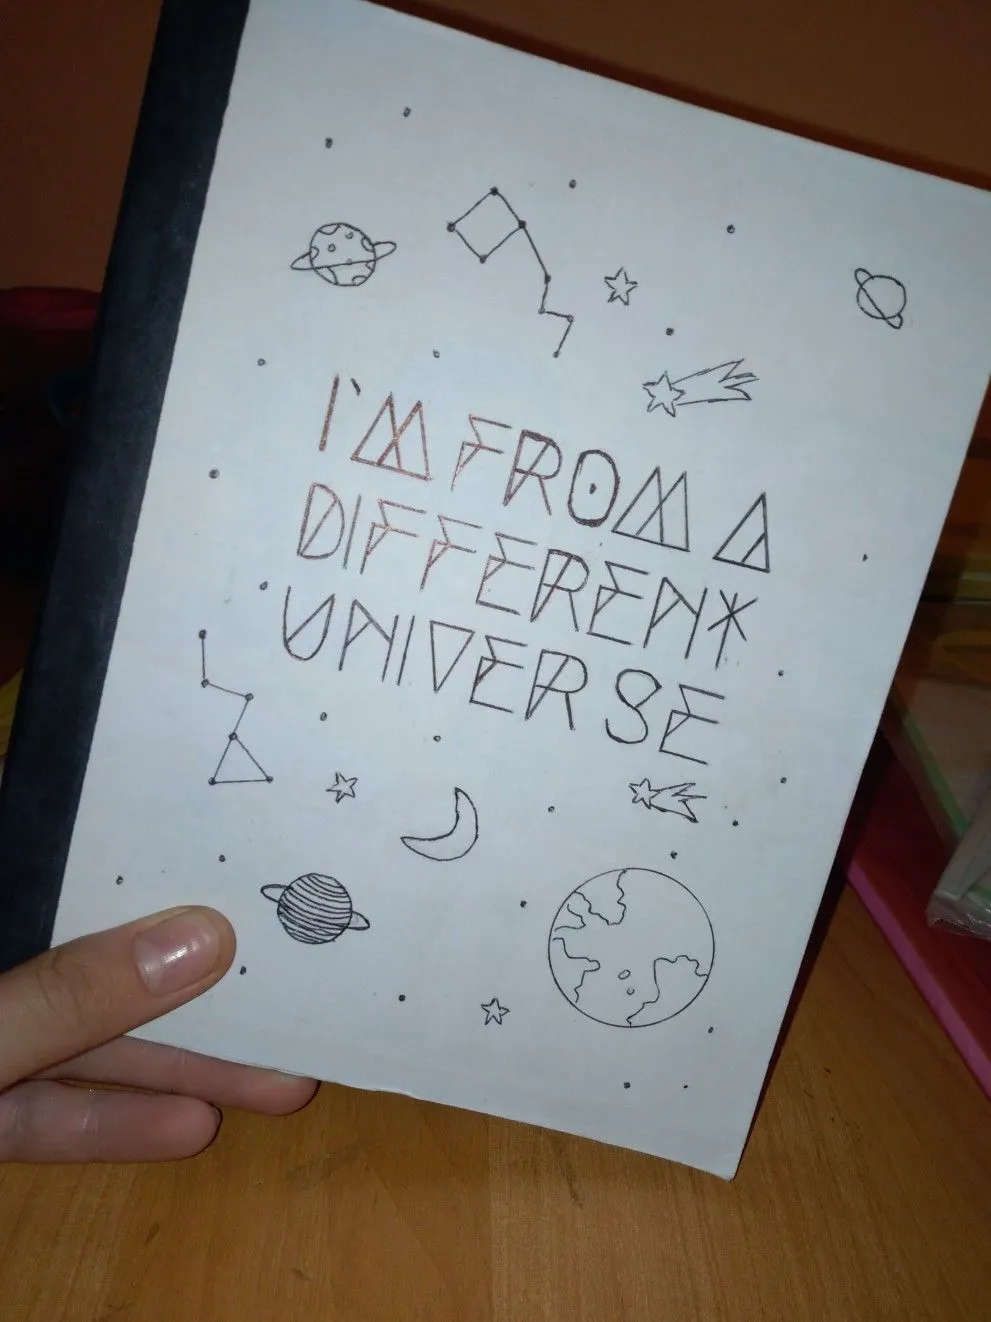 I'M FROM A
DIFFERENT
UNIVERSE